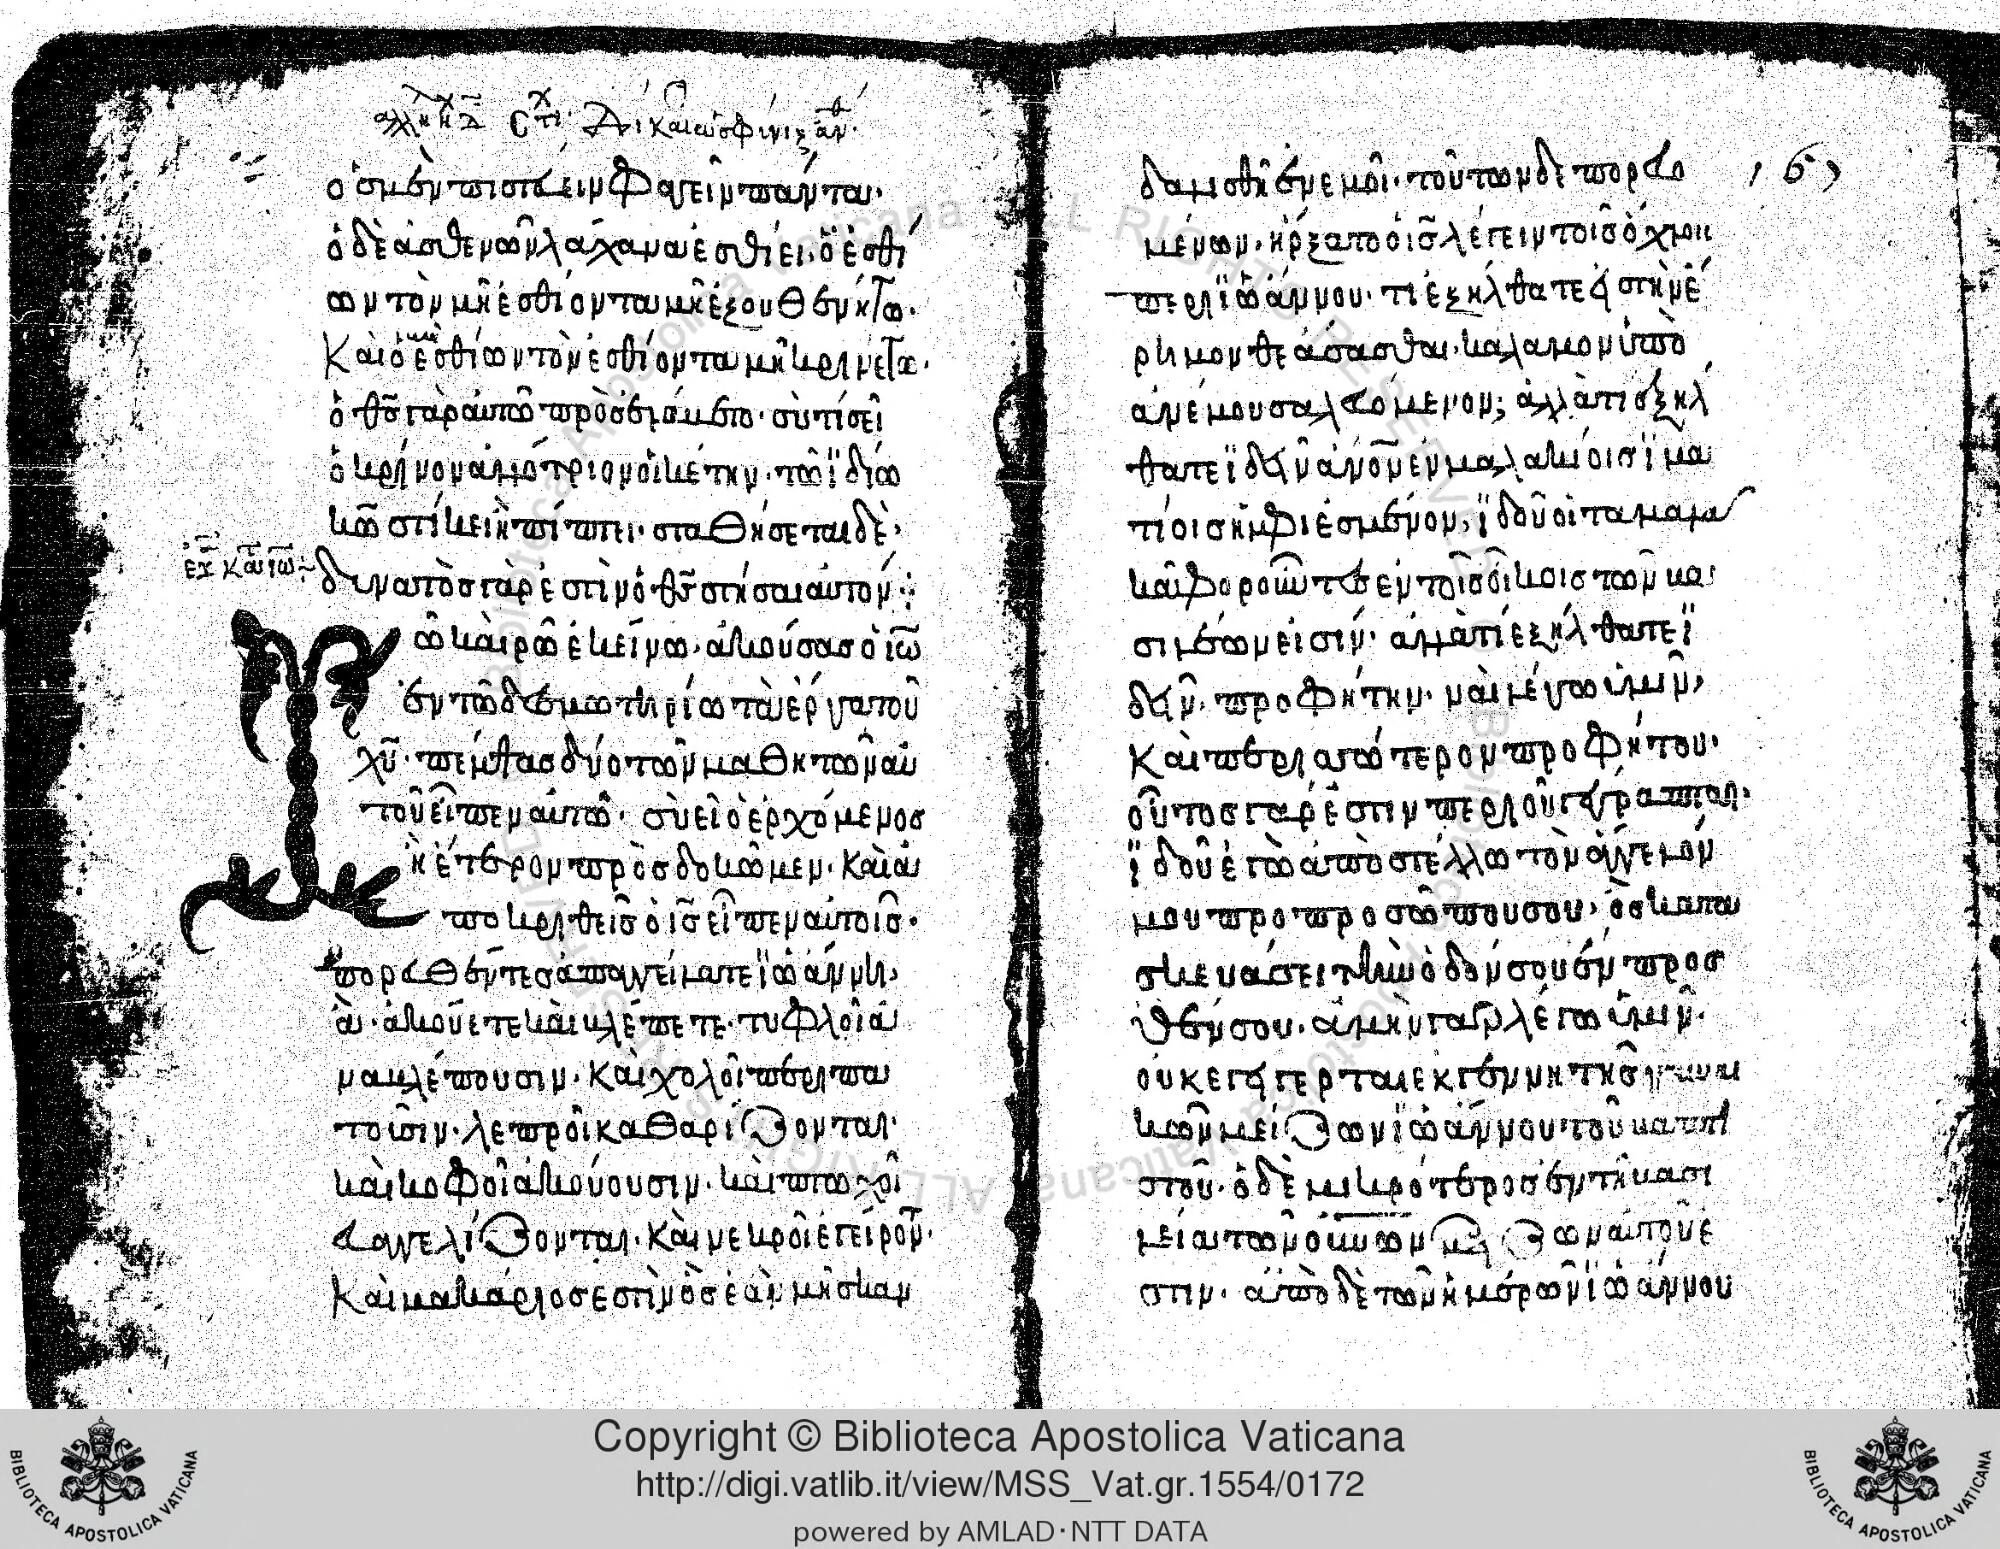 ὁ μὲν πιστεύει φαγεῖν πάντα·
ὁ δὲ ἀσθενῶν λάχανα ἐσθίει· ὁ ἐσθί
ων τὸν μὴ ἐσθίοντα μὴ ἐξουθενήτω·
Καὶ ὁ μὴ ἐσθίων τὸν ἐσθίοντα μὴ κρινέτω·
ὁ θς γὰρ αὐτὸ προσελάμβετο· σὺ τίς εἶ
ὁ κρίνον ἀλλότριον οἰκέτην· τῶ ἰδίω
κῶ στίκει ἢ πίπτει· σταθήσεται δὲ·
δυνατὸς γάρ ἐστὶν ὁ θς στῆσαι αὐτόν·
ῶ καιρῶ ἐκείνω· ἀκούσας ὁ ἰω
ἐν τῶ δεσμωτηρίω τὰ ἐργα τοῦ
χυ· πέμψας δύο τῶν μαθητῶν αὐ
τοῦ εἶπεν αὐτῶ· σὺ εἶ ὁ ἐρχόμενος
ἢ ἕτερον προσδοκῶμεν· Καὶ ἀ
ποκριθεὶς ὁ ις εἶπεν αὐτοῖς·
πορευθέντες ἀπαγγείλατε ἰωάννη·
ἃ ἀκούετε καὶ βλέπετε· τυφλοὶ ἀ
ναβλέπουσιν· Καὶ χολοὶ περιπα
τοῦσιν· λεπροὶ καθαρίζονται·
καὶ κοφοὶ ἀκούουσιν· καὶ πτωχοὶ
εὐαγγελίζονται· Καὶ νεκροὶ ἐγείροντ·
Καὶ μακάριος ἐστὶν ὃς ἐὰν μὴ σκαν
δαλισθῆ ἐν ἐμοί· τούτων δὲ πορευο
μένων· ἤρξατο ὁ ις λέγειν τοῖς ὄχλοις
περὶ ἰωάννου· τί ἐξήλθατε εἰς τὴν ἔ
ρημον θεάσασθαι· καλαμον ὑπὸ
ἀνέμου σαλευόμενον; ἀλλὰ τί ἐξήλ
θατε ἰδεῖν ἀνον ἐν μαλακίοις ἱμα
τίοις ἠμφιεσμένον· ἰδοὺ οἱ τα μαλα
κὰ φοροῦντες ἐν τοῖς οἴκοις τῶν βα
σιλέων εἰσίν· ἀλλὰ τί ἐξήλθατε ἰ
δεῖν· προφήτην· ναὶ λέγω ὑμῖν·
Καὶ περισσότερον προφήτου·
οὗτος γάρ ἐστιν περὶ οὗ γέγραπται·
ἰδοὺ ἐγὼ ἀποστέλλω τὸν ἄγγελόν
μου προ προσώπου σου· ὃς κατα
σκευάσει τὴν ὁδόν σου ἐμπροσ
θέν σου· ἀμὴν γὰρ λέγω ὑμῖν·
οὐκ εγήγερται ἐκ γεννητῆς γυναι
κῶν μείζων ἰωάννου τοῦ βαπτι
στοῦ· ὁ δὲ μικρότερος ἐν τῆ βασι
λεία τῶν οὐνων μείζων αὐτοῦ ἐ
στιν· ἀπὸ δὲ τῶν ἡμέρων ἰωάννου
Copyright © Biblioteca Apostolica Vaticana
http://digi.vatlib.it/view/MSS_Vat.gr.1554/0172
powered by AMLAD·NTT DATA
BIBLIOTECA APOSTOLICA VATICANA
BIBLIOTECA APOSTOLICA VATICANA